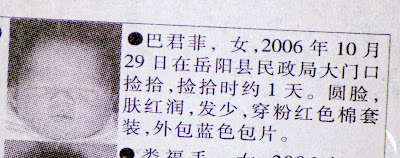 ●巴君菲，女，2006 年 10 月
29 日在岳阳县民政局大门口
捡拾，捡拾时约 1 天。圆脸，
肤红润，发少，穿粉红色棉套
装，外包蓝色包片。